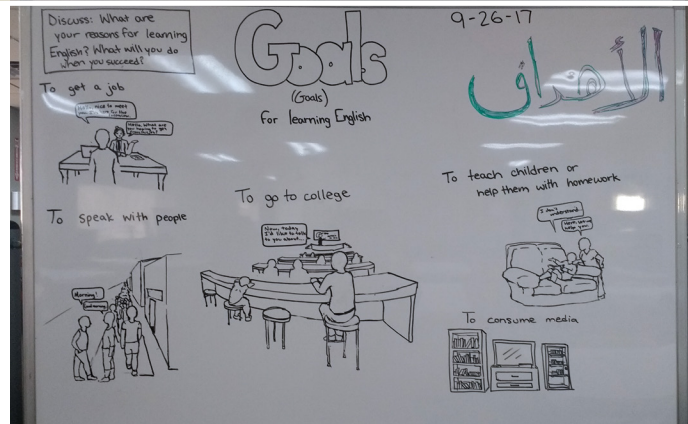 Discuss: What are
your reasons for learning
English? What will you do
when you succeed?
Goals
(Goals)
for learning English
9-26-17
الأهداف
To get a job
To speak with people
Morning!
To go to college
Now, today
I'd like to talk
to you about...
To teach children or
help them with homework
I don't
understand.
To consume media